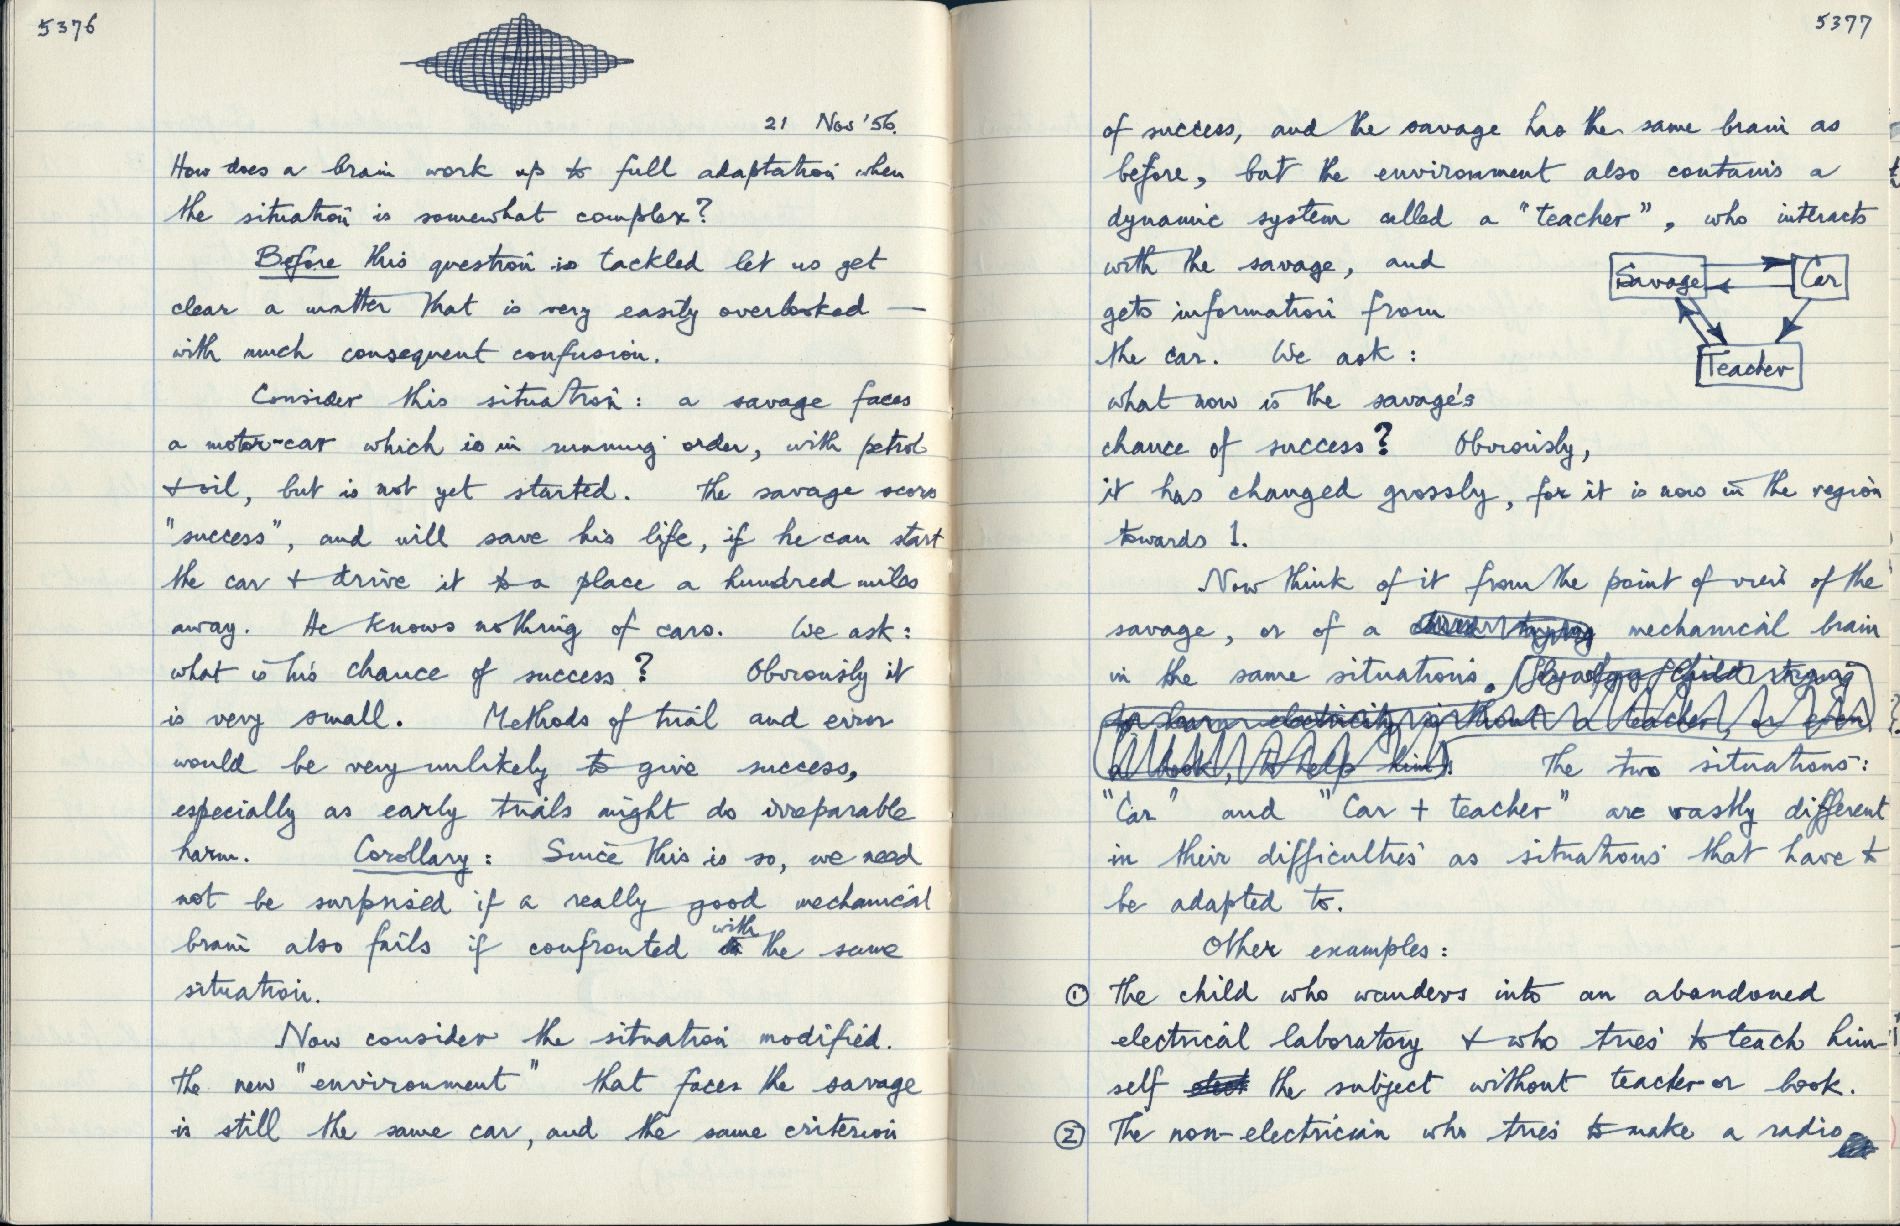 5376
21 Nov '56.
How does a brain work up to full adaptation when
the situation is somewhat complex?
Before this question is tackled let us get
clear a matter that is very easily overlooked —
with much consequent confusion.
Consider this situation: a savage faces
a motor-car which is in running order, with petrol
+ oil, but is not yet started. The savage scores
"success", and will save his life, if he can start
the car + drive it to a place a hundred miles
away. He knows nothing of cars. We ask:
what is his chance of success? Obviously it
is very small. Methods of trial and error
would be very unlikely to give success,
especially as early trials might do irreparable
harm. Corollary: Since this is so, we need
not be surprised if a really good mechanical
brain also fails if confronted with the same
situation.
Now consider the situation modified.
The new "environment" that faces the savage
is still the same car, and the same criterion
5377
of success, and the savage has the same brain as
before, but the environment also contains a
dynamic system called a "teacher", who interacts
with the savage, and
gets information from
the car. We ask:
what now is the savage's
chance of success? Obviously,
it has changed grossly, for it is now in the region
towards 1.
Savage Car
Teacher
Now think of it from the point of view of the
savage, or of a mechanical brain
in the same situations. child trying
to learn electricity without a teacher, or even
a book, to help him. The two situations:
"Car" and "Car + teacher" are vastly different
in their difficulties as situations that have to
be adapted to.
Other examples:
① The child who wanders into an abandoned
electrical laboratory + who tries to teach him-
self the subject without teacher or book.
② The non-electrician who tries to make a radio